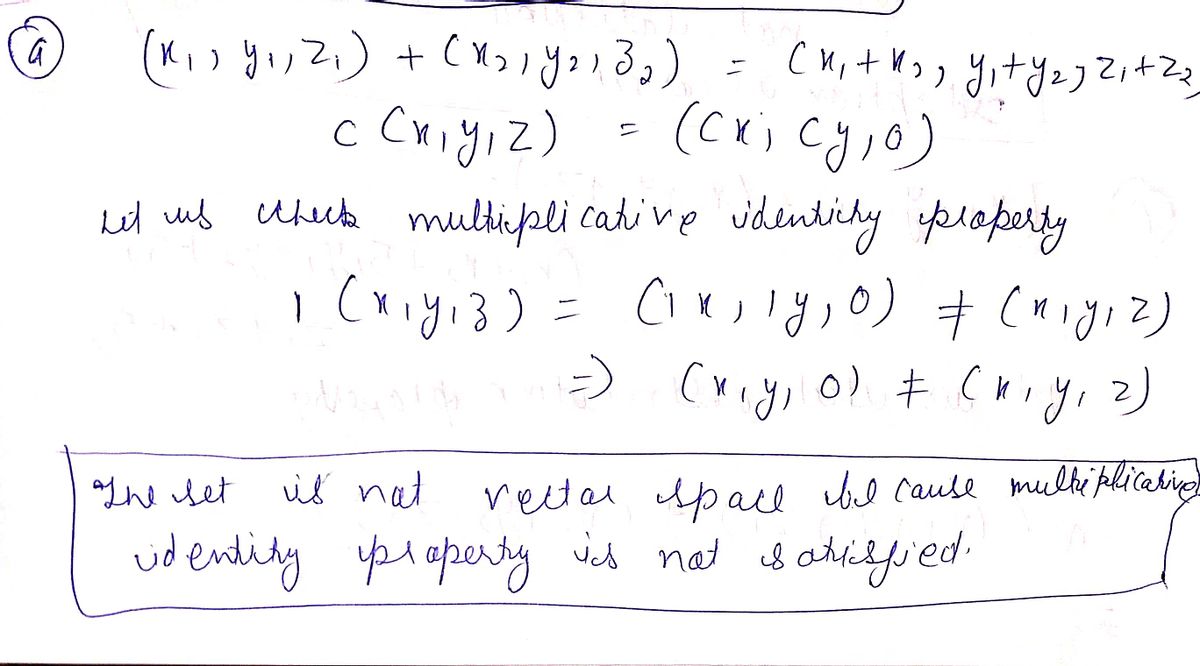 a (x₁, y₁, z₁) + (x₂, y₂, z₂) = (x₁+x₂, y₁+y₂, z₁+z₂)
c (x, y, z) = (cx, cy, 0)
Let us check multiplicative identity property
1 (x, y, z) = (1x, 1y, 0) ≠ (x, y, z)
=> (x, y, 0) ≠ (x, y, z)
The set is not vector space because multiplicative
identity property is not satisfied.